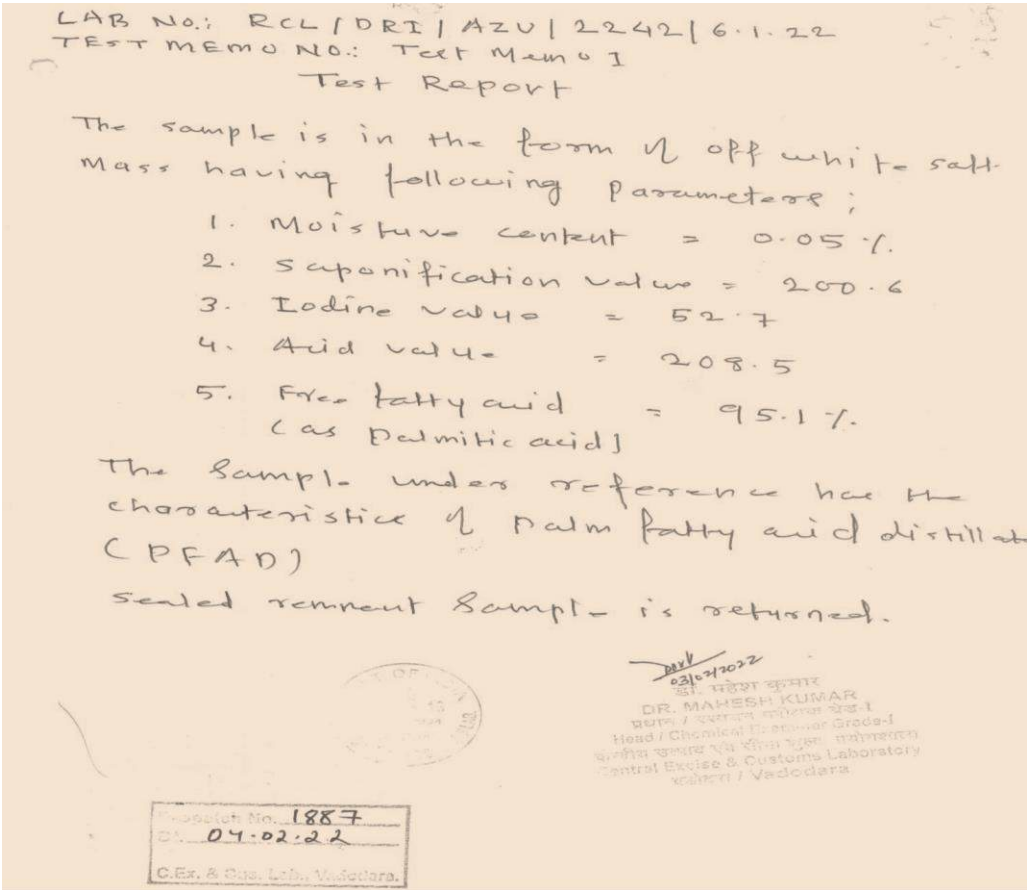 LAB No.: RCL/DRI/AZU/2242/6.1.22
TEST MEMO NO.: Test Memo I
Test Report
The sample is in the form of off white soft
Mass having following parameters;
1. Moisture content = 0.05 %.
2. Saponification value = 200.6
3. Iodine value = 52.7
4. Acid value = 208.5
5. Free fatty acid = 95.1 %.
(as Palmitic acid)
The Sample under reference has the
characteristics of Palm fatty acid distillat
(PFAD)
Sealed remnant Sample is returned.
03/02/2022
डा. महेश कुमार
DR. MAHESH KUMAR
Head / Chemical Examiner Grade-I
Central Excise & Customs Laboratory
वडोदरा / Vadodara
Despatch No. 1887
Dt. 04.02.22
C.Ex. & Cus. Lab., Vadodara.